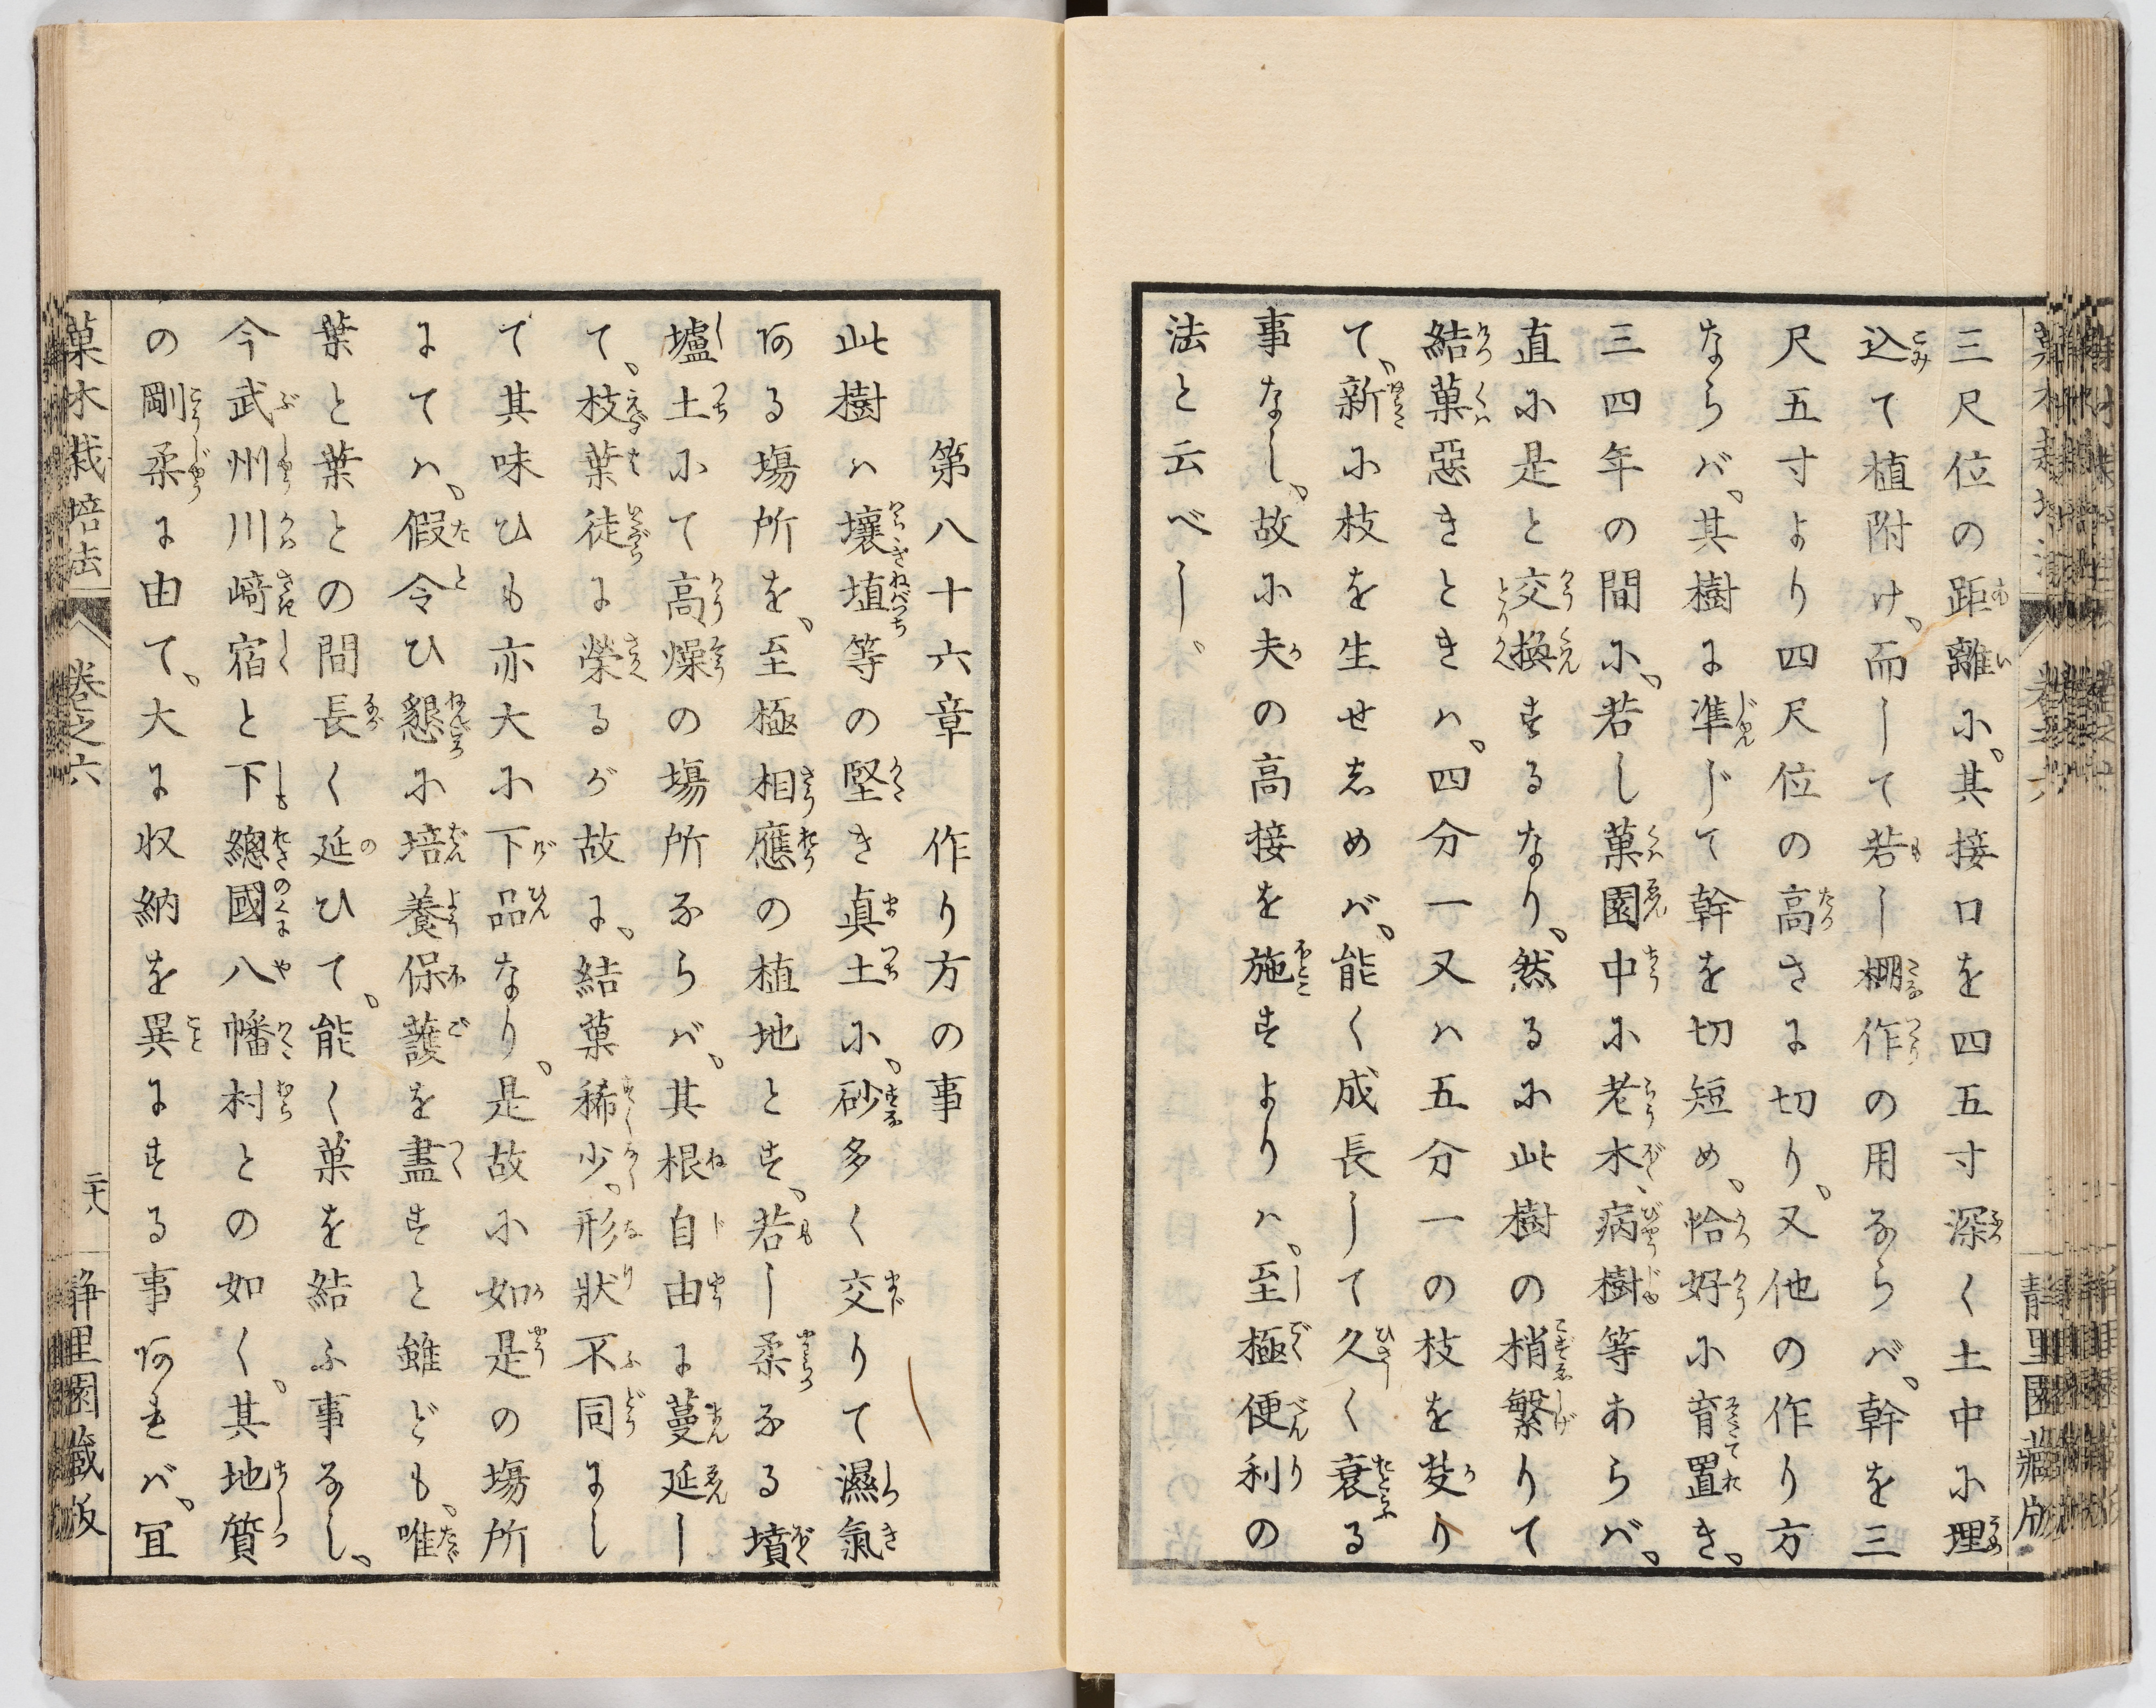 三尺位の距離に、其接口を四五寸深く土中に埋
込て植附け、而して若し棚作の用ならバ、幹を三
尺五寸より四尺位の高さに切り、又他の作り方
ならバ、其樹に準じて幹を切短め、恰好に育置き、
三四年の間に、若し菓園中に老木、病樹等あらバ、
直に是と交換するなり、然るに此樹の梢繁りて
結菓惡きときハ、四分一又ハ五分一の枝を芟り
て、新に枝を生せしめバ、能く成長して久く衰る
事なし、故に夫の高接を施すよりハ、至極便利の
法と云べし、
第八十六章 作り方の事
此樹ハ壤埴等の堅き眞土に、砂多く交りて濕氣
ある塲所を、至極相應の植地とす、若し柔なる墳
壚土にて高燥の塲所ならバ、其根自由に蔓延し
て、枝葉徒に榮るが故に、結菓稀少、形狀不同にし
て其味ひも亦大に下品なり、是故に如是の塲所
にてハ、假令ひ懇に培養保護を盡すと雖ども、唯
葉と葉との間長く延ひて、能く菓を結ふ事なし、
今武州川﨑宿と下總國八幡村との如く、其地質
の剛柔に由て、大に収納を異にする事あれバ、冝
菓木栽培法 巻之六 二十八 静里園藏版